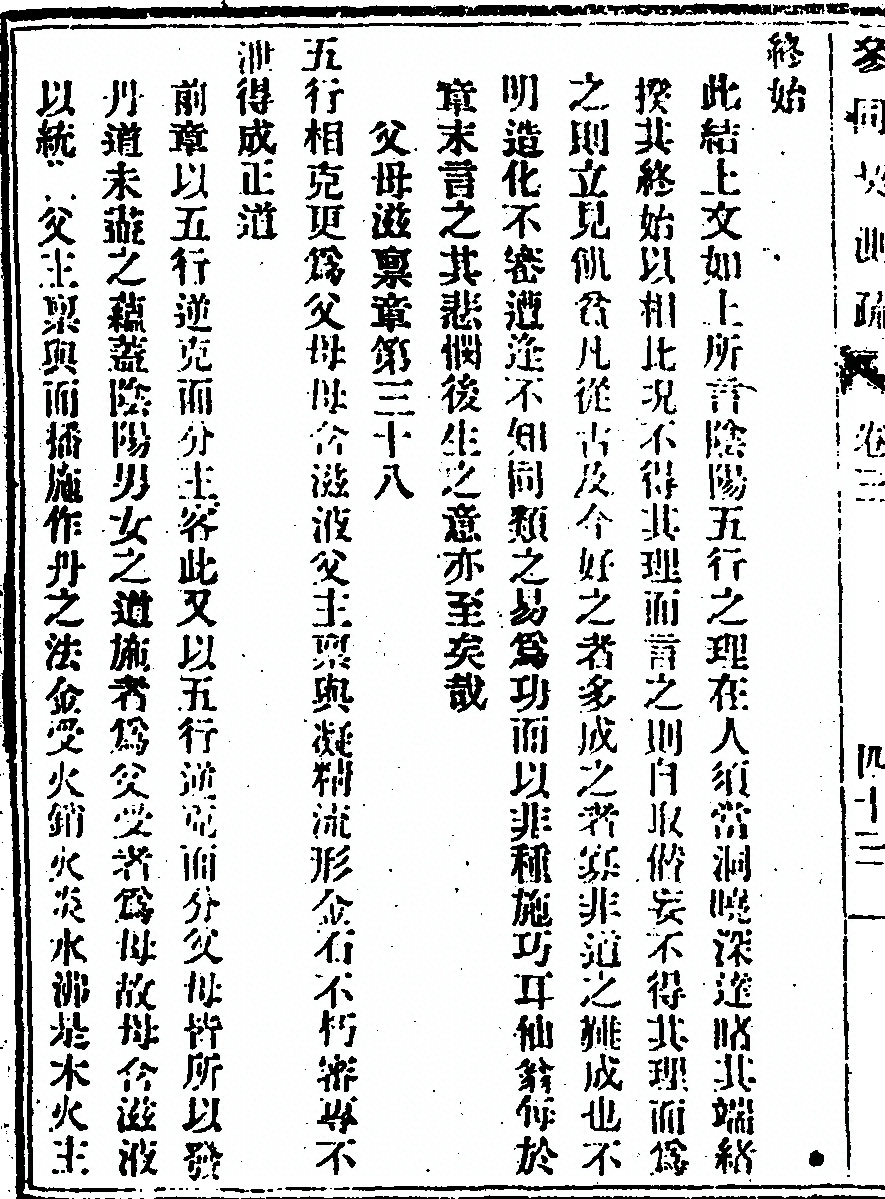 參同契測疏 卷三 四十三
終始
此結上文如上所言陰陽五行之理在人須當洞曉深達睹其端緒
揆其終始以相比况不得其理而言之則自取僭妄不得其理而為
之則立見飢貧凡從古及今好之者多成之者寡非道之難成也不
明造化不審遭逢不知同類之易為功而以非種施巧耳仙翁每於
章末言之其悲憫後生之意亦至矣哉
父母滋稟章第三十八
五行相克更為父母母含滋液父主稟與凝精流形金石不朽審專不
泄得成正道
前章以五行逆克而分主客此又以五行逆克而分父母皆所以發
丹道未盡之蘊蓋陰陽男女之道施者為父受者為母故母含滋液
以統 父主稟與而播施作丹之法金受火銷火炎水沸是木火主